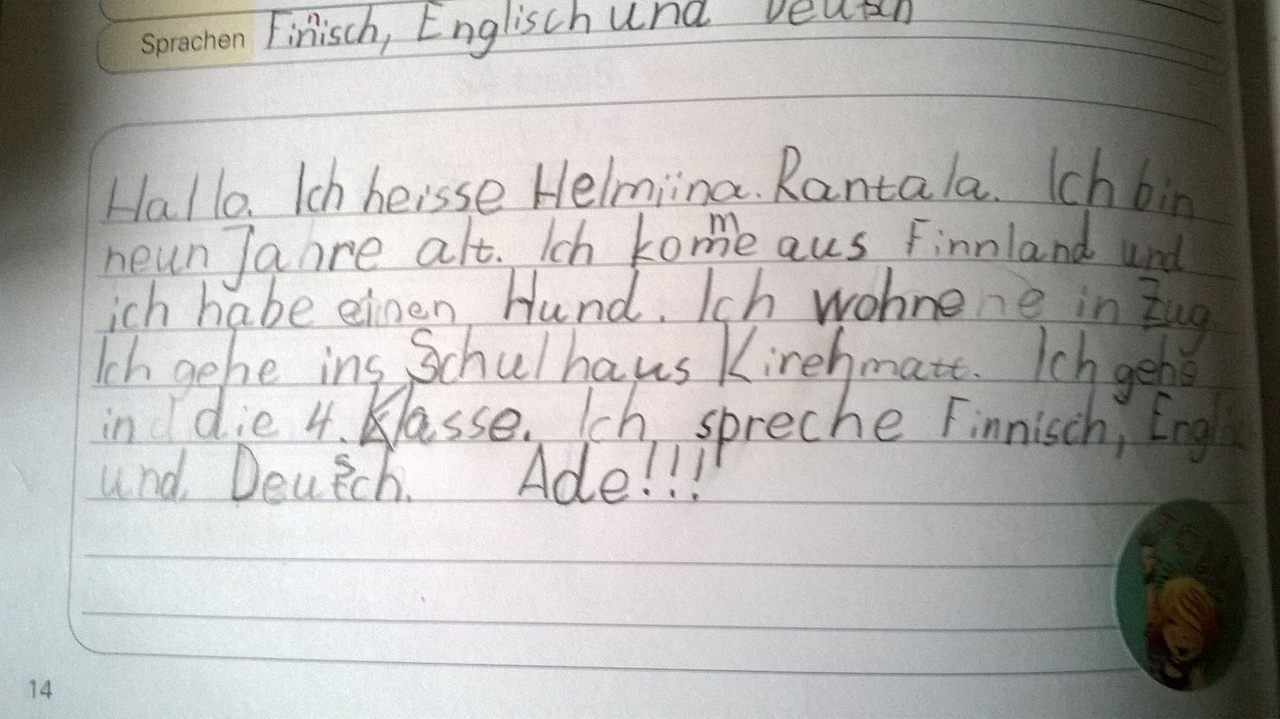 Sprachen Finnisch, Englisch und Deutsch
Hallo. Ich heisse Helmiina. Rantala. Ich bin
neun Jahre alt. Ich komme aus Finnland und
ich habe einen Hund. Ich wohnene in Zug
Ich gehe ins Schulhaus Kirchmatt. Ich gehe
in die 4. Klasse. Ich spreche Finnisch, Engli
und Deutsch. Ade!!!
14